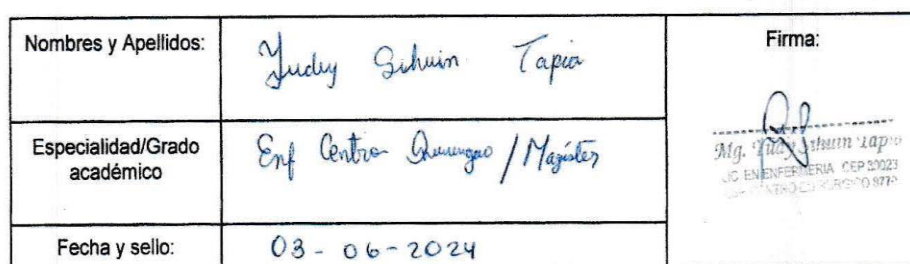 Nombres y Apellidos:
Yudey Sihuin Tapia
Firma:
Especialidad/Grado
académico
Enf Centro Quirurgico / Magíster
Mg. Yudy Sihuin Tapia
LIC EN ENFERMERIA CEP 30023
CENTRO QUIRURGICO
Fecha y sello:
03 - 06 - 2024